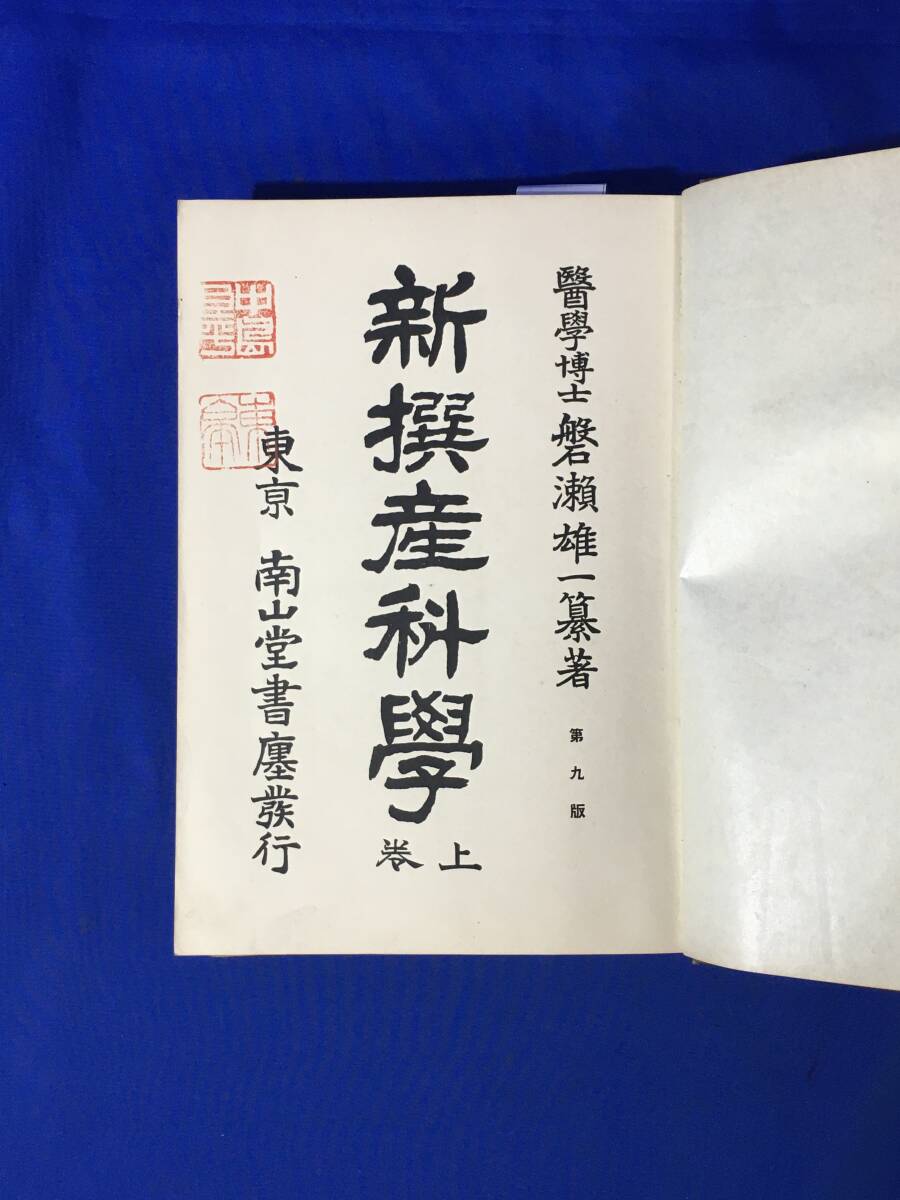 醫學博士 磐瀨雄一纂著 第九版
新撰産科學
上卷
東京 南山堂書店發行